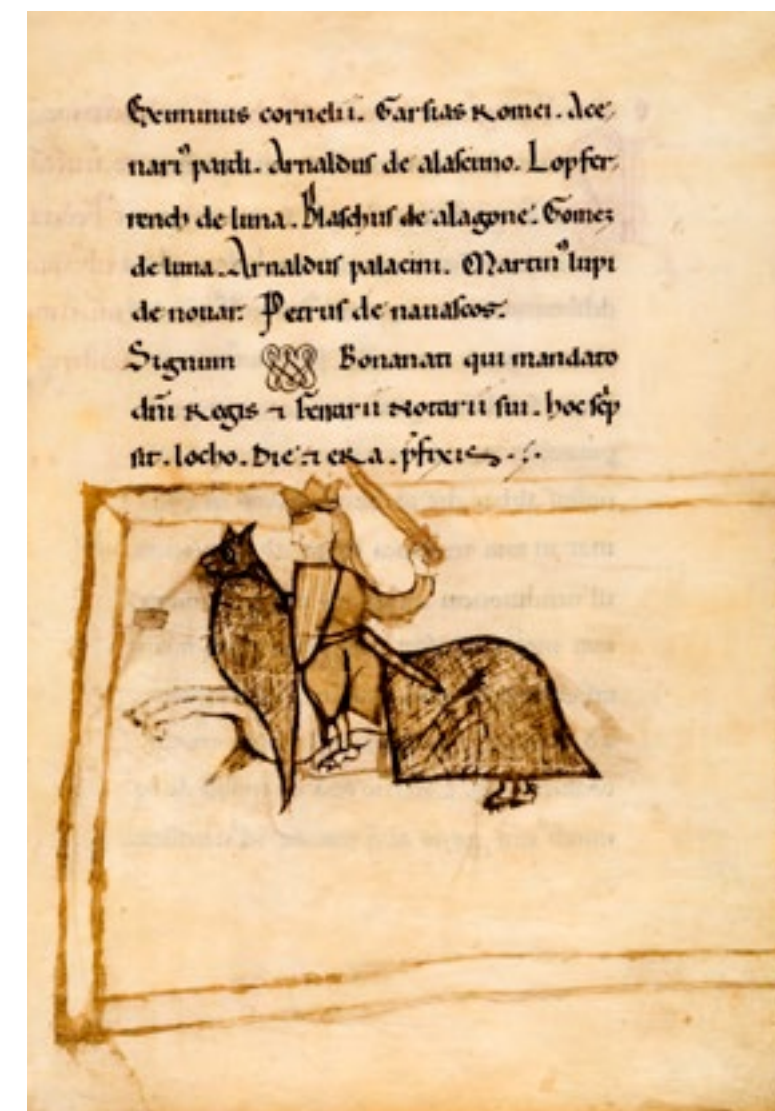 Exımınus cornelıı. Garsias Romei. Ace-
narıꝰ pardı. Arnaldus de alascuno. Lop fer-
rench de luna. Blaschus de alagone. Gomez
de luna. Arnaldus palacini. Martinꝰ lupi
de nouar. Petrus de nauascos.
Signum Bonanati qui mandato
dn̄i Regis ⁊ berarii Notarii sui. hoc sc̄p
sit. locho. die ⁊ eRa. p̄fixis.